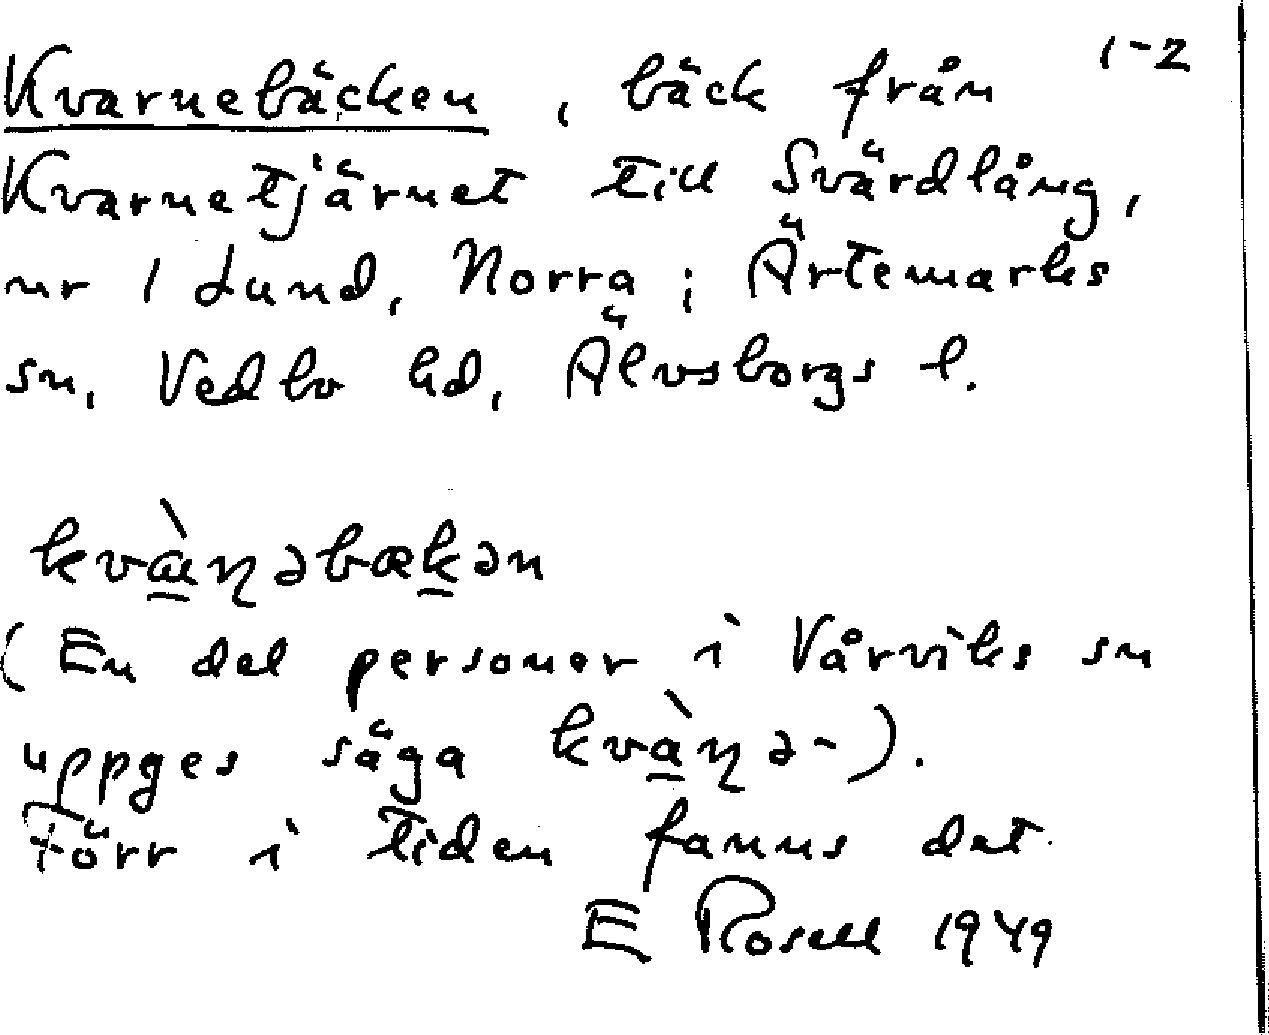 1-2
Kvarnebäcken, bäck från
Kvarnetjärnet till Svärdlång,
nr 1 Lund, Norra; Ärtemarks
sn, Vedbo hd, Älvsborgs l.
kvæ̀ɳəbækən
(En del personer i Vårviks sn
uppges säga kvàɳə-).
Förr i tiden fanns det
E Rosell 1949